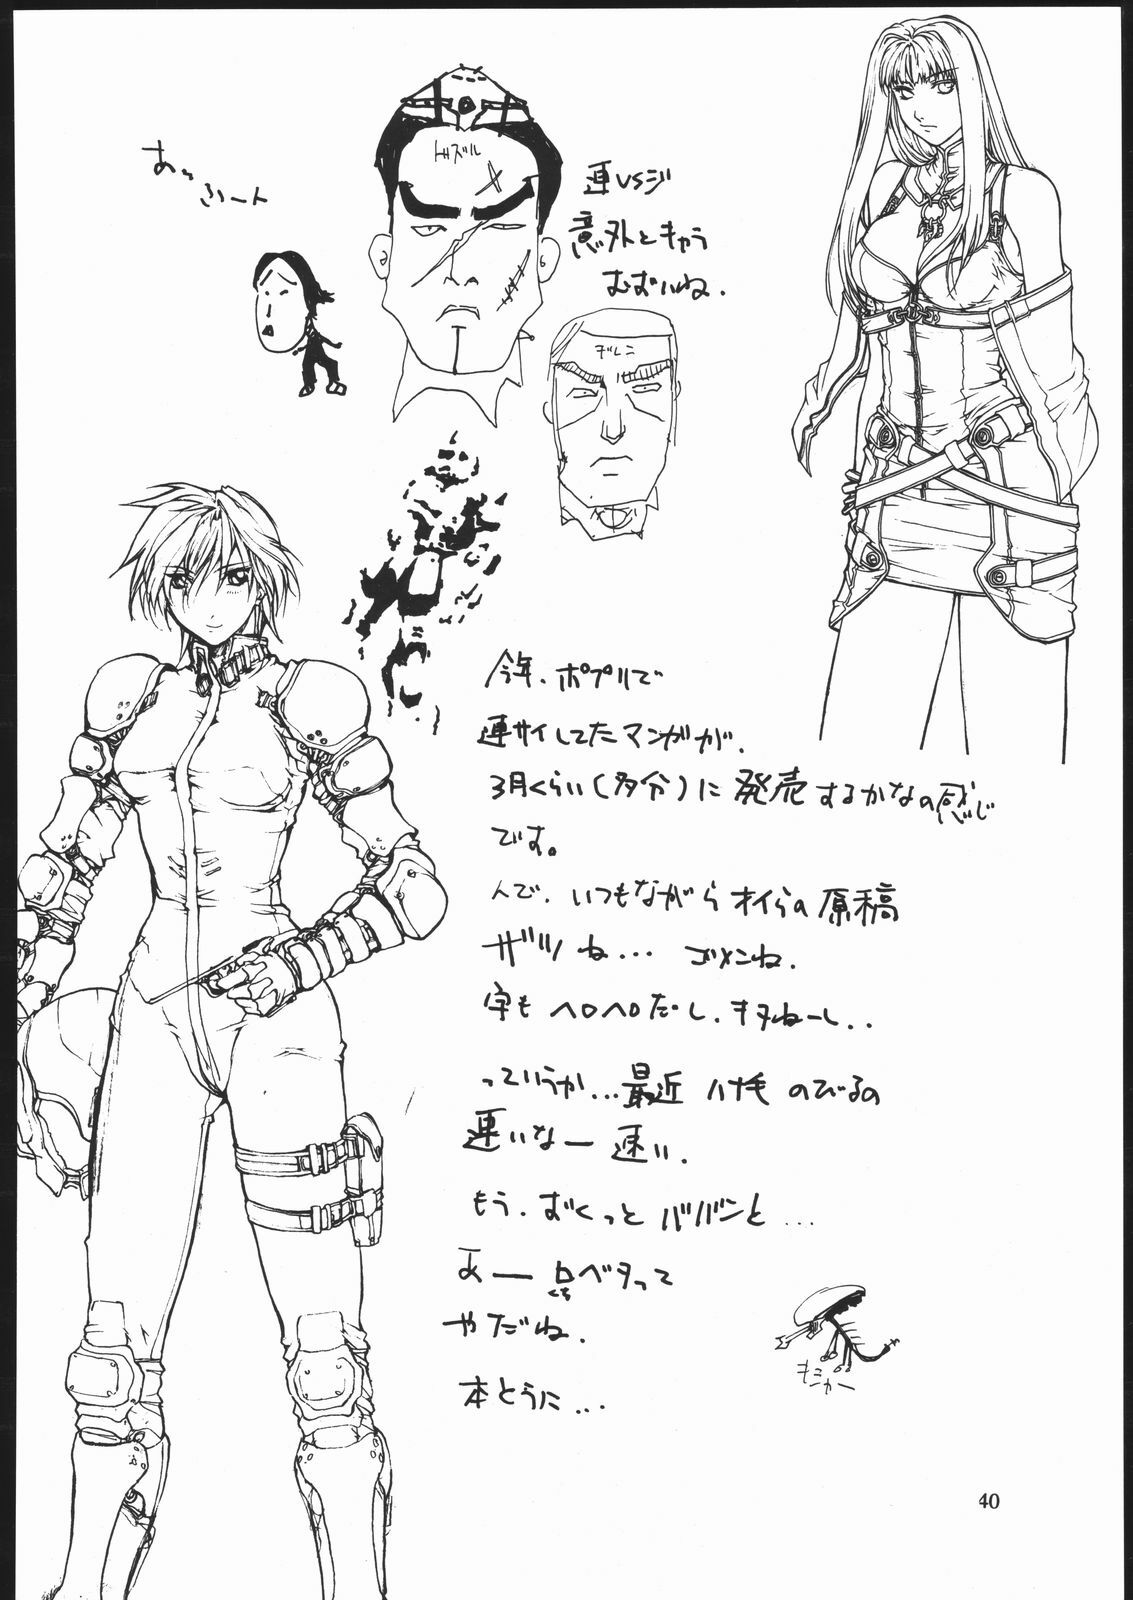 ドズル
連VSジ
意外とキャラ
むずいね.
ギレン
今年、ポプリで
連サイしてたマンガが、
3月くらい(多分)に発売するかなの感じ
です。
んで、いつもながらオイらの原稿
ザツね... ゴメンね.
字もヘロヘロだし、キタねーし..
っていうか...最近ハナ毛のびるの
速いなー速い.
もう、ずくっとババンと...
あー口ベタって
くち
やだね.
本とうに...
40